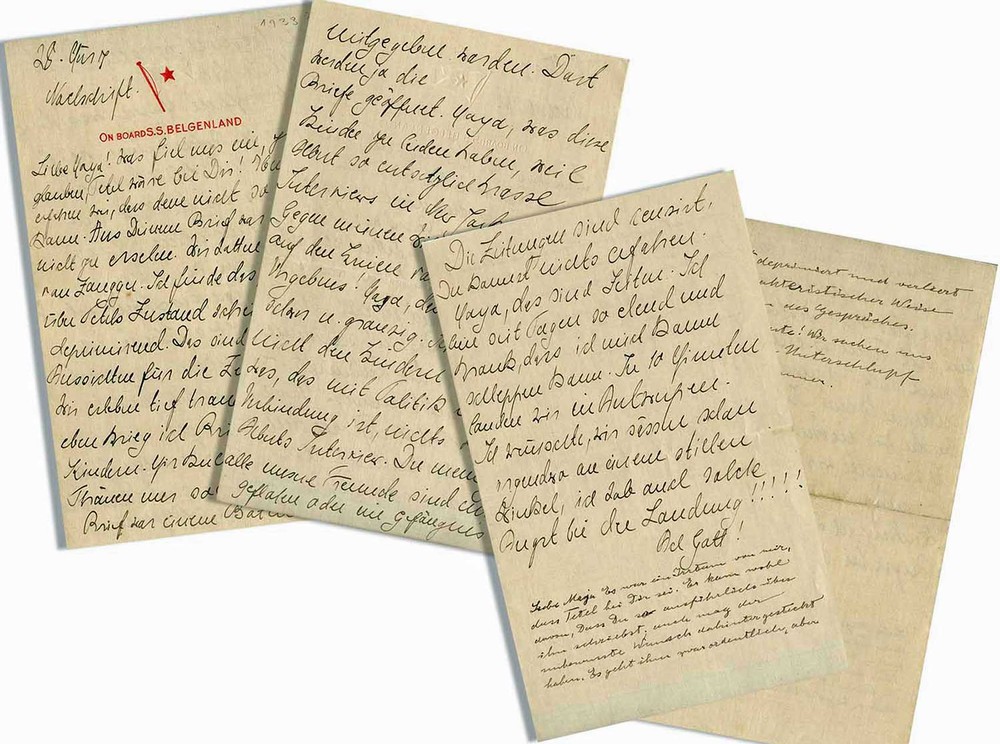 1933
28.
Nachschrift.
ON BOARD S.S. BELGENLAND
Liebe was fiel mir ein,
glauben, Tetel wäre bei Dir!
erfahren wir, dass dem nicht so
kann. Aus Deinem Brief war
nicht zu ersehen. Wir hatten
von Zangger. Ich finde das
über Tetels Zustand
deprimirend. Das sind
Aussichten für die
Wir erleben tief
eben krieg ich
Kindern.
Thränen
Brief war einem
mitgegeben worden. Dort
werden ja die
Briefe geöffnet. was diese
Kinder zu leiden haben, weil
Albert so entsetzlich krasse
Interviews in New York
Gegen meinen
auf den Knieen
Vergebens!
Ich
nicht den Kindern
das mit Politik
Verbindung ist, nichts
Alberts Interview. Du
alle unsere Freunde sind
geflohen oder im Gefängnis
Die Zeitungen sind censirt,
Du kannst nichts erfahren.
das sind Zeiten. Ich
bin seit Tagen so elend und
krank, dass ich mich kaum
schleppen kann. In 10 Minuten
landen wir in Antwerpen.
Ich wünschte, wir sässen schon
irgendwo an einem stillen
Winkel, ich hab auch solche
Angst bei der Landung!!!!!
Ach Gott!
Liebe Maja Es war ein Irrtum von mir,
dass Tetel bei Dir sei. Es kam wohl
davon, dass Du so ausführlich über
ihn schriebst; auch mag der
unbewusste Wunsch dahinter gesteckt
haben. Es geht ihm zwar ordentlich, aber
deprimiert und verliert
charakteristischer Weise
des Gespräches.
Wir suchen uns
Unterschlupf